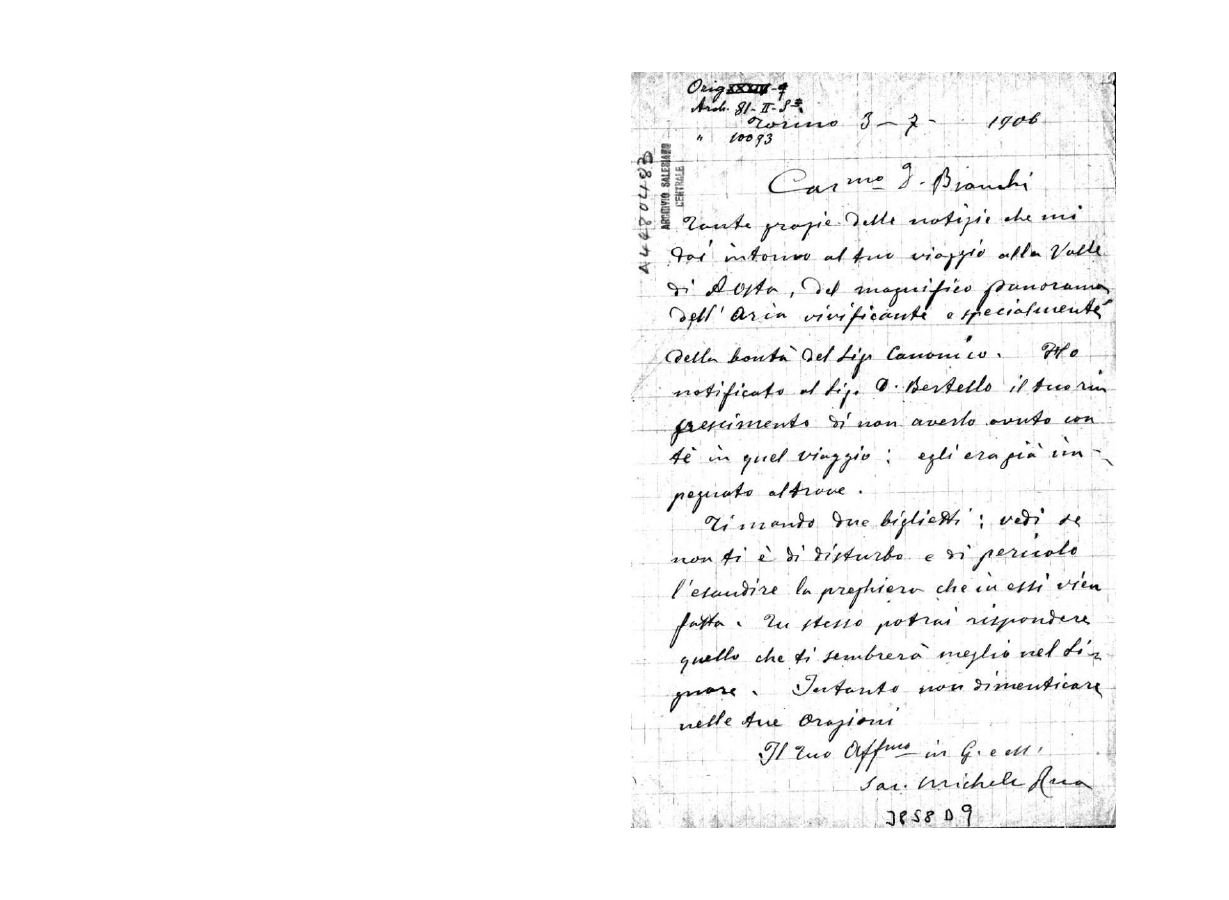 Orig. XXXIV-4
7
Arch. 81-II-S
Torino 3-7- 1906
" 10093
A4480483
ARCHIVIO SALESIANO
CENTRALE
Carmo D. Bianchi
Tante grazie delle notizie che mi
dai intorno al tuo viaggio alla Valle
di Aosta, del magnifico panorama
dell'aria vivificante e specialmente
della bontà del Sig. Canonico. Ho
notificato al Sig. D. Bertello il tuo rin
crescimento di non averlo avuto con
te in quel viaggio: egli era già im-
pegnato altrove.
Ti mando due biglietti; vedi se
non ti è di disturbo e di pericolo
l'esaudire la preghiera che in essi vien
fatta. Tu stesso potrai rispondere
quello che ti sembrerà meglio nel Si-
gnore. Intanto non dimenticare
nelle tue orazioni
Il tuo Affmo in G. e M.
Sac. Michele Rua
3958 D 9